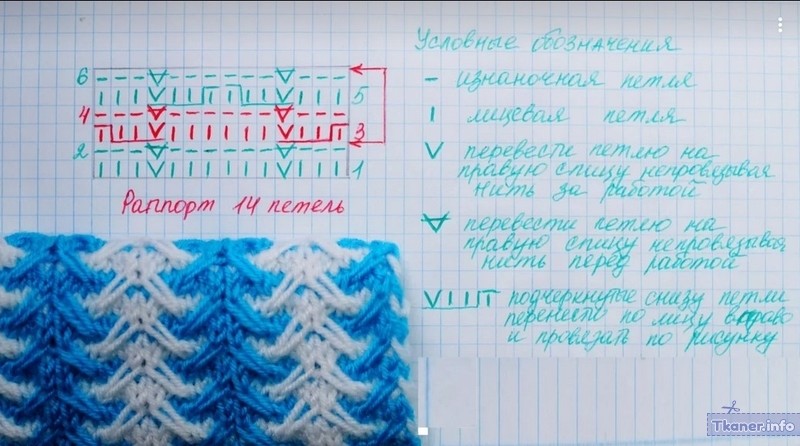 6 - - - V - - - - - - - V - - -
I I I V I I I I I I I V I I I 5
4 - - - V - - - - - - - V - - -
I I I V I I I I I I I V I I I 3
2 - - - V - - - - - - - V - - -
I I I V I I I I I I I V I I I 1
Раппорт 14 петель
Условные обозначения
- изнаночная петля
I лицевая петля
V перевести петлю на
правую спицу непровязывая
нить за работой
V перевести петлю на
правую спицу непровязывая
нить перед работой
V I I I подчеркнутые снизу петли
перенести по лицу вправо
и провязать по рисунку
Tkaner.info